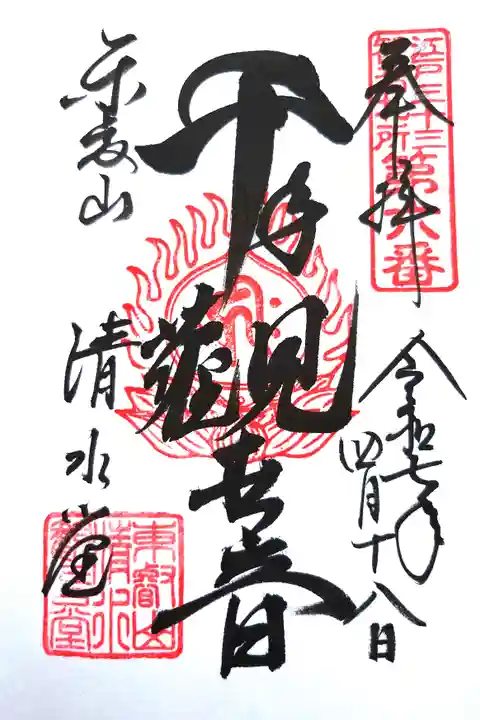 奉拝
江戸三十三
所第六番
令和七年
四月十八日
千手観世音
東叡山
清水堂
東叡山
清水
観音堂